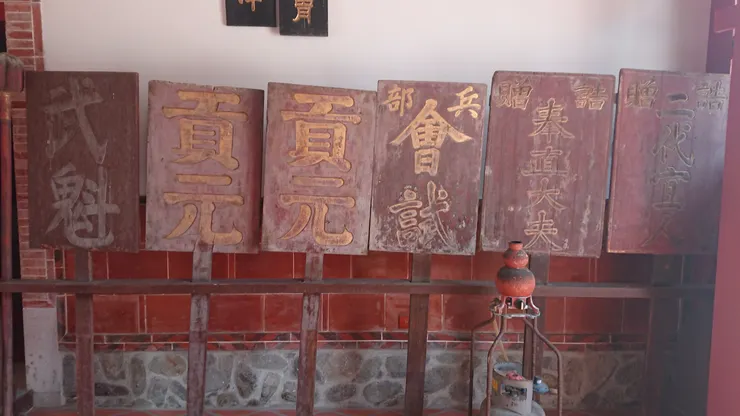 武魁
貢元
貢元
兵部
會試
誥贈
奉直大夫
誥贈
二代